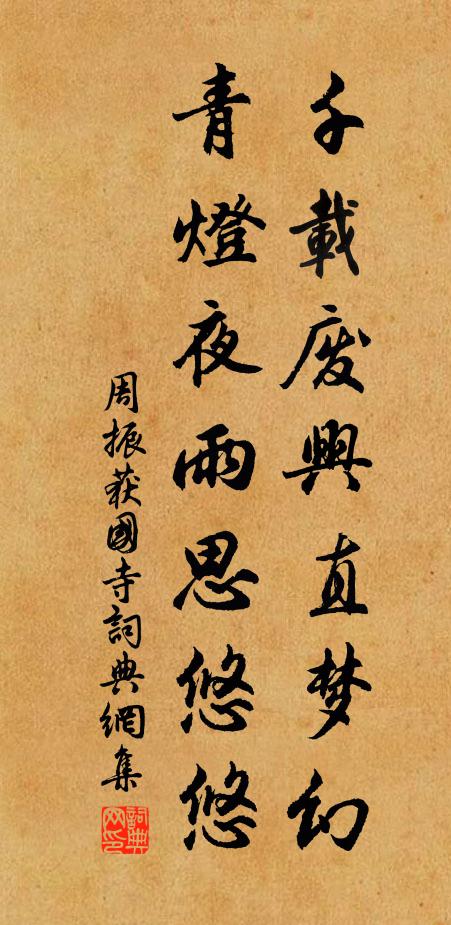 千載废興直梦幻
青燈夜雨思悠悠
周振获國寺詞典網集
詞典网印